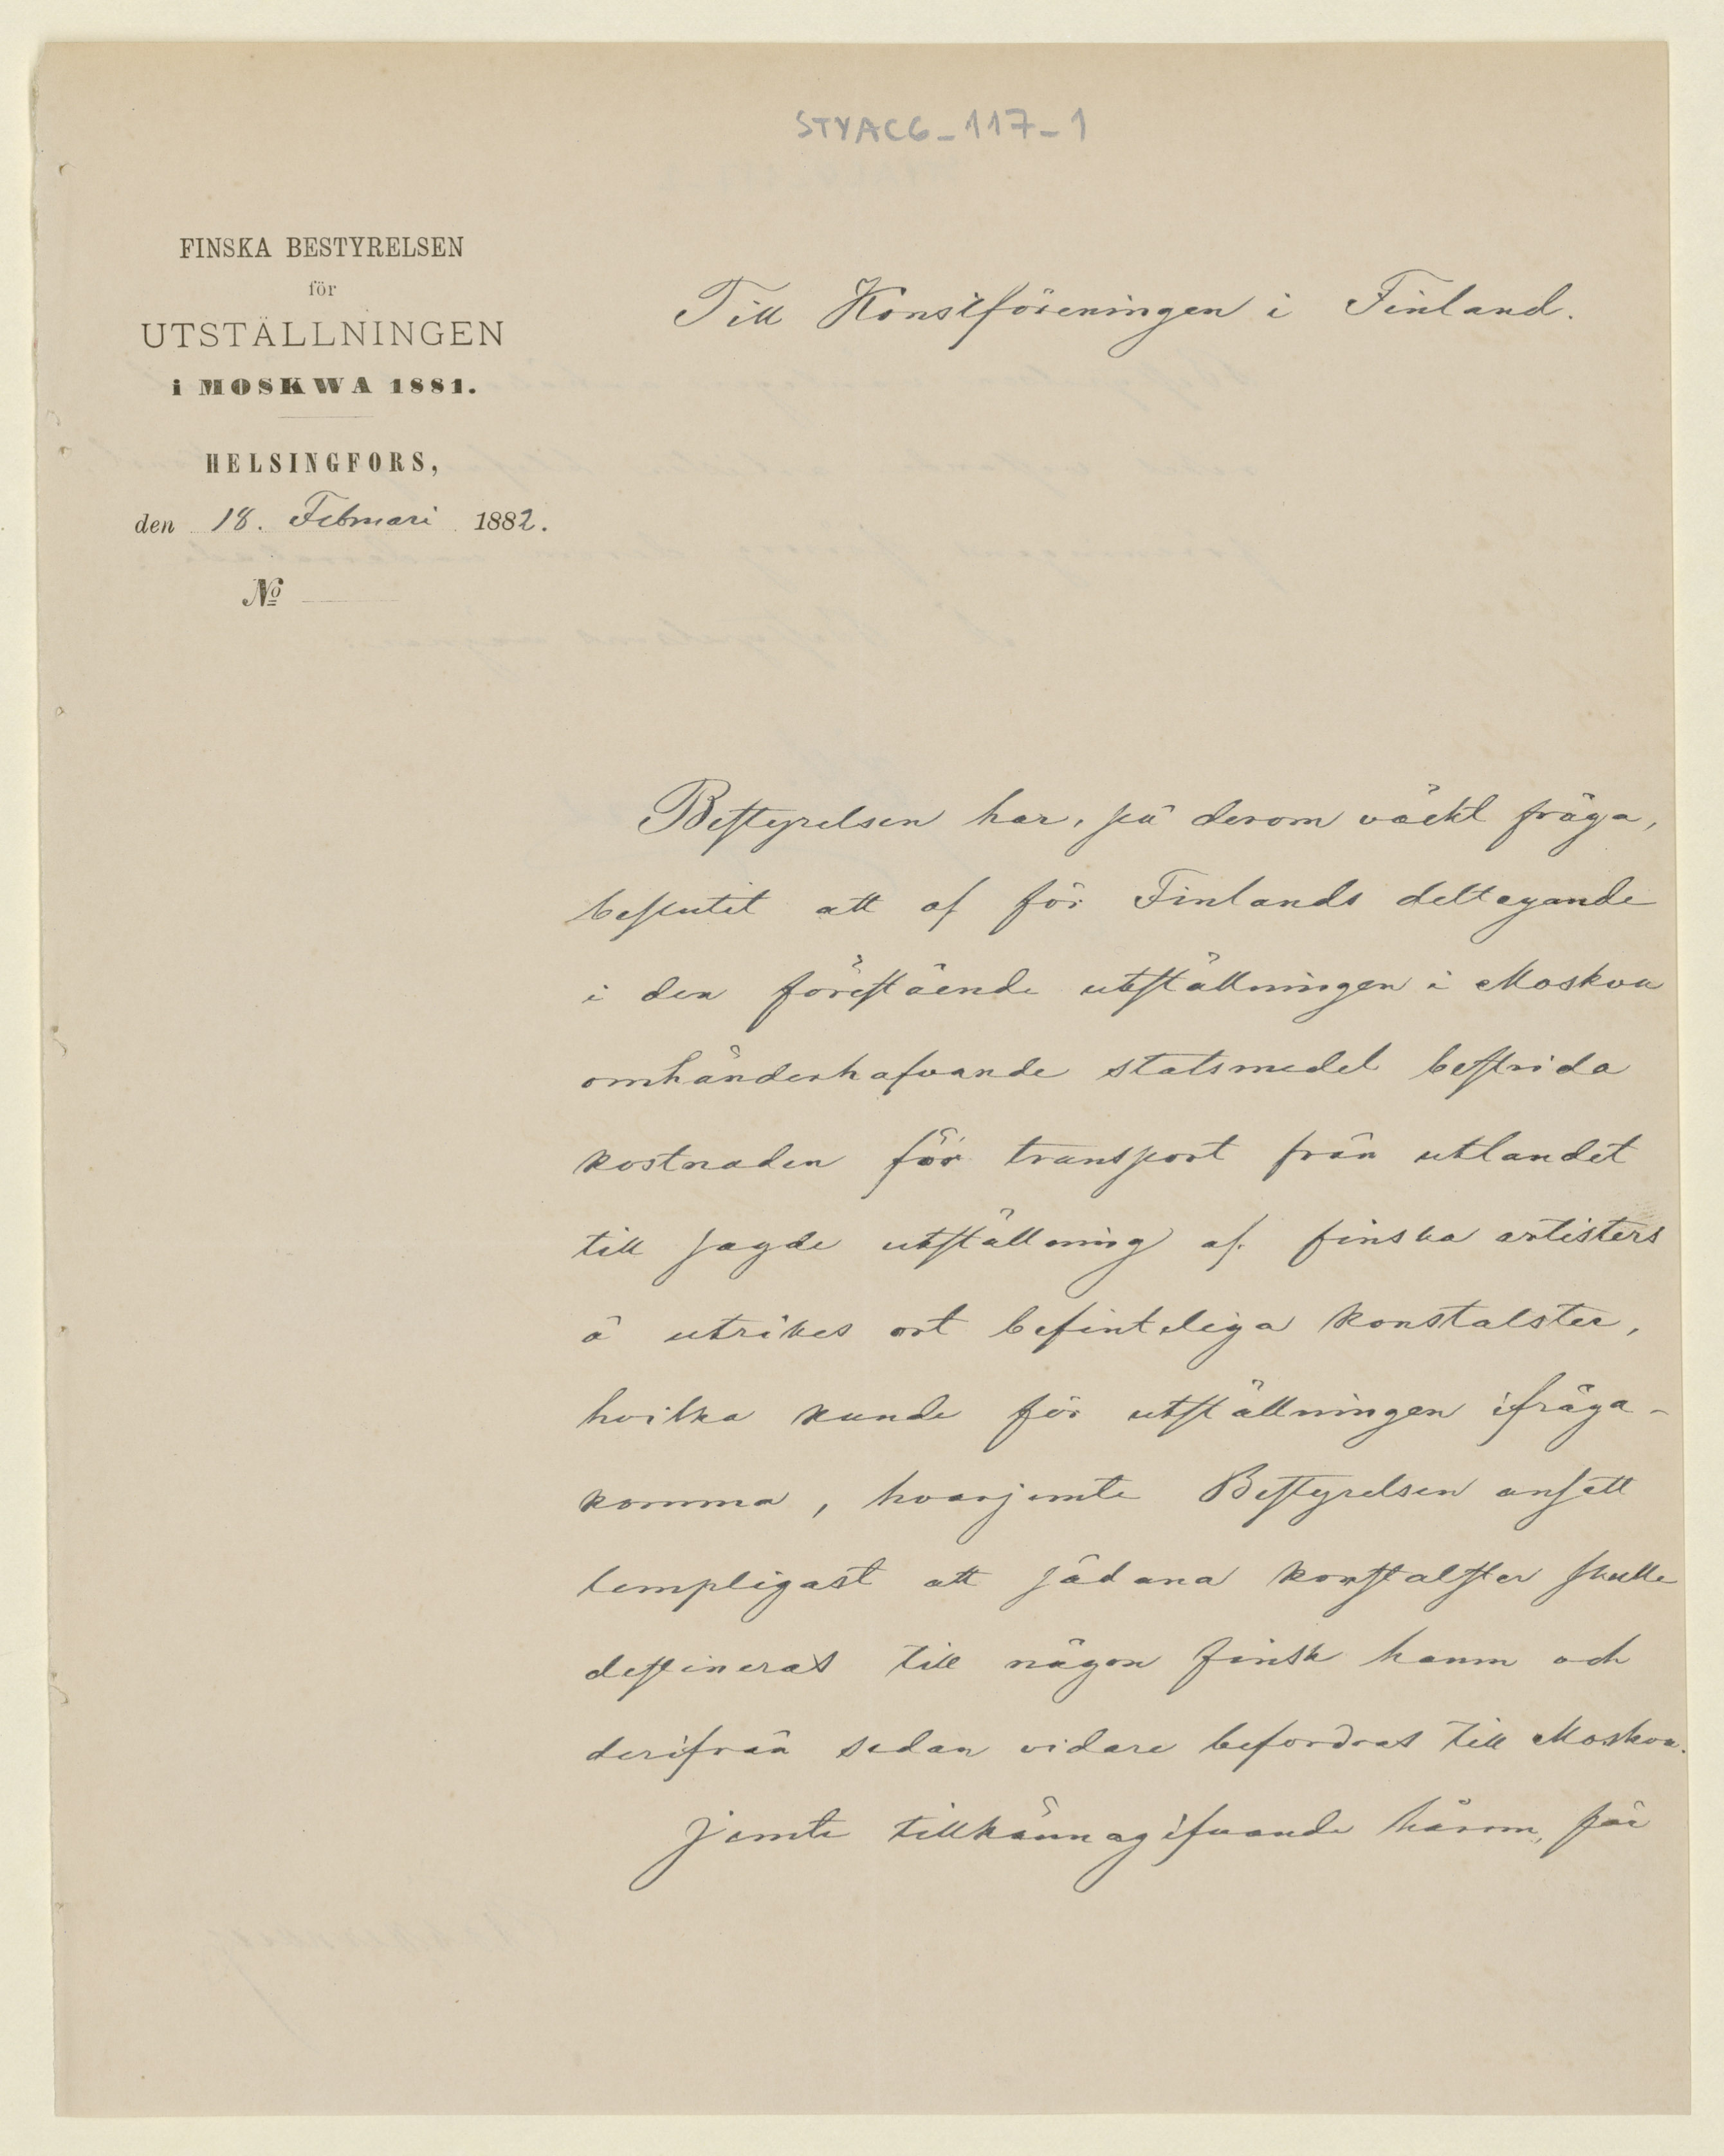 STYAC6_117_1
FINSKA BESTYRELSEN
för
UTSTÄLLNINGEN
i MOSKWA 1881.
HELSINGFORS,
den 18. Februari 1882.
№
Till Konstföreningen i Finland.
Bestyrelsen har, på derom väckt fråga,
beslutit att af för Finlands deltagande
i den förestående utställningen i Moskva
omhänderhafvande statsmedel bestrida
kostnaden för transport från utlandet
till sagde utställning af finska artisters
å utrikes ort befintliga konstalster,
hvilka kunde för utställningen ifråga-
komma, hvarjemte Bestyrelsen ansett
lempligast att sådana konstalster skulle
destineras till någon finsk hamn och
derifrån sedan vidare befordras till Moskva.
Jemte tillkännagifvande härom, får